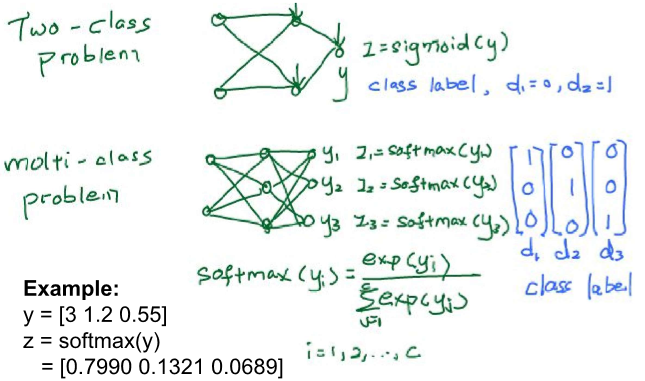 Two-class
problem
z=sigmoid(y)
y
class label, d₁=0, d₂=1
molti-class
problem
y₁ z₁=softmax(y₁) [1 0 0] [0 1 0] [0 0 1]
y₂ z₂=softmax(y₂)
y₃ z₃=softmax(y₃)
d₁ d₂ d₃
class label
softmax(yᵢ) = exp(yᵢ) / Σⱼ₌₁ᶜ exp(yⱼ)
i=1,2,...,c
Example:
y = [3 1.2 0.55]
z = softmax(y)
= [0.7990 0.1321 0.0689]